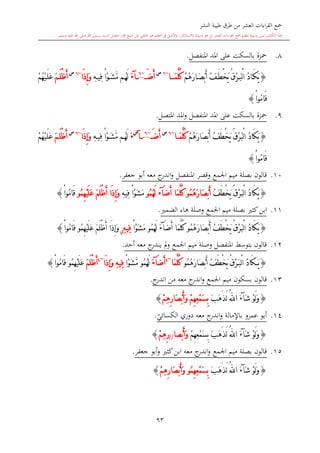 جمع القراءات العشر من طرق طيبة النشر
٨. حمزة بالسكت على المد المنفصل.
﴿ يَكَادُ ٱلۡبَرۡقُ يَخۡطَفُ أَبۡصَٰرَهُمۡ كُلَّمَآ أَضَآءَ لَهُم مَّشَوۡاْ فِيهِ وَإِذَآ أَظۡلَمَ عَلَيۡهُمۡ
قَامُواْ ﴾
٩. حمزة بالسكت على المد المنفصل والمد المتصل.
﴿ يَكَادُ ٱلۡبَرۡقُ يَخۡطَفُ أَبۡصَٰرَهُمۡ كُلَّمَآ أَضَآءَ لَهُم مَّشَوۡاْ فِيهِ وَإِذَآ أَظۡلَمَ عَلَيۡهُمۡ
قَامُواْ ﴾
١٠. قالون بصلة ميم الجمع وقصر المنفصل واندرج معه أبو جعفر.
﴿ يَكَادُ ٱلۡبَرۡقُ يَخۡطَفُ أَبۡصَٰرَهُمُو كُلَّمَا أَضَآءَ لَهُمُو مَّشَوۡاْ فِيهِ وَإِذَا أَظۡلَمَ عَلَيۡهِمُو قَامُواْ ﴾
١١. ابن كثير بصلة ميم الجمع وصلة هاء الضمير.
﴿ يَكَادُ ٱلۡبَرۡقُ يَخۡطَفُ أَبۡصَٰرَهُمُو كُلَّمَا أَضَآءَ لَهُمُو مَّشَوۡاْ فِيهِۦ وَإِذَا أَظۡلَمَ عَلَيۡهِمُو قَامُواْ ﴾
١٢. قالون بتوسط المنفصل وصلة ميم الجمع ولم يندرج معه أحد.
﴿ يَكَادُ ٱلۡبَرۡقُ يَخۡطَفُ أَبۡصَٰرَهُمُو كُلَّمَآ أَضَآءَ لَهُمُو مَّشَوۡاْ فِيهِ وَإِذَآ أَظۡلَمَ عَلَيۡهِمُو قَامُواْ ﴾
١٣. قالون بسكون ميم الجمع واندرج معه من اندرج.
﴿ وَلَوۡ شَآءَ ٱللَّهُ لَذَهَبَ بِسَمۡعِهِمۡ وَأَبۡصَٰرِهِمۡ ﴾
١٤. أبو عمرو بالإمالة واندرج معه دوري الكسائي.
﴿ وَلَوۡ شَآءَ ٱللَّهُ لَذَهَبَ بِسَمۡعِهِمۡ وَأَبۡصَٰرِهِمۡ ﴾
١٥. قالون بصلة ميم الجمع واندرج معه ابن كثير وأبو جعفر.
﴿ وَلَوۡ شَآءَ ٱللَّهُ لَذَهَبَ بِسَمۡعِهِمُو وَأَبۡصَٰرِهِمُو ﴾
٩٣